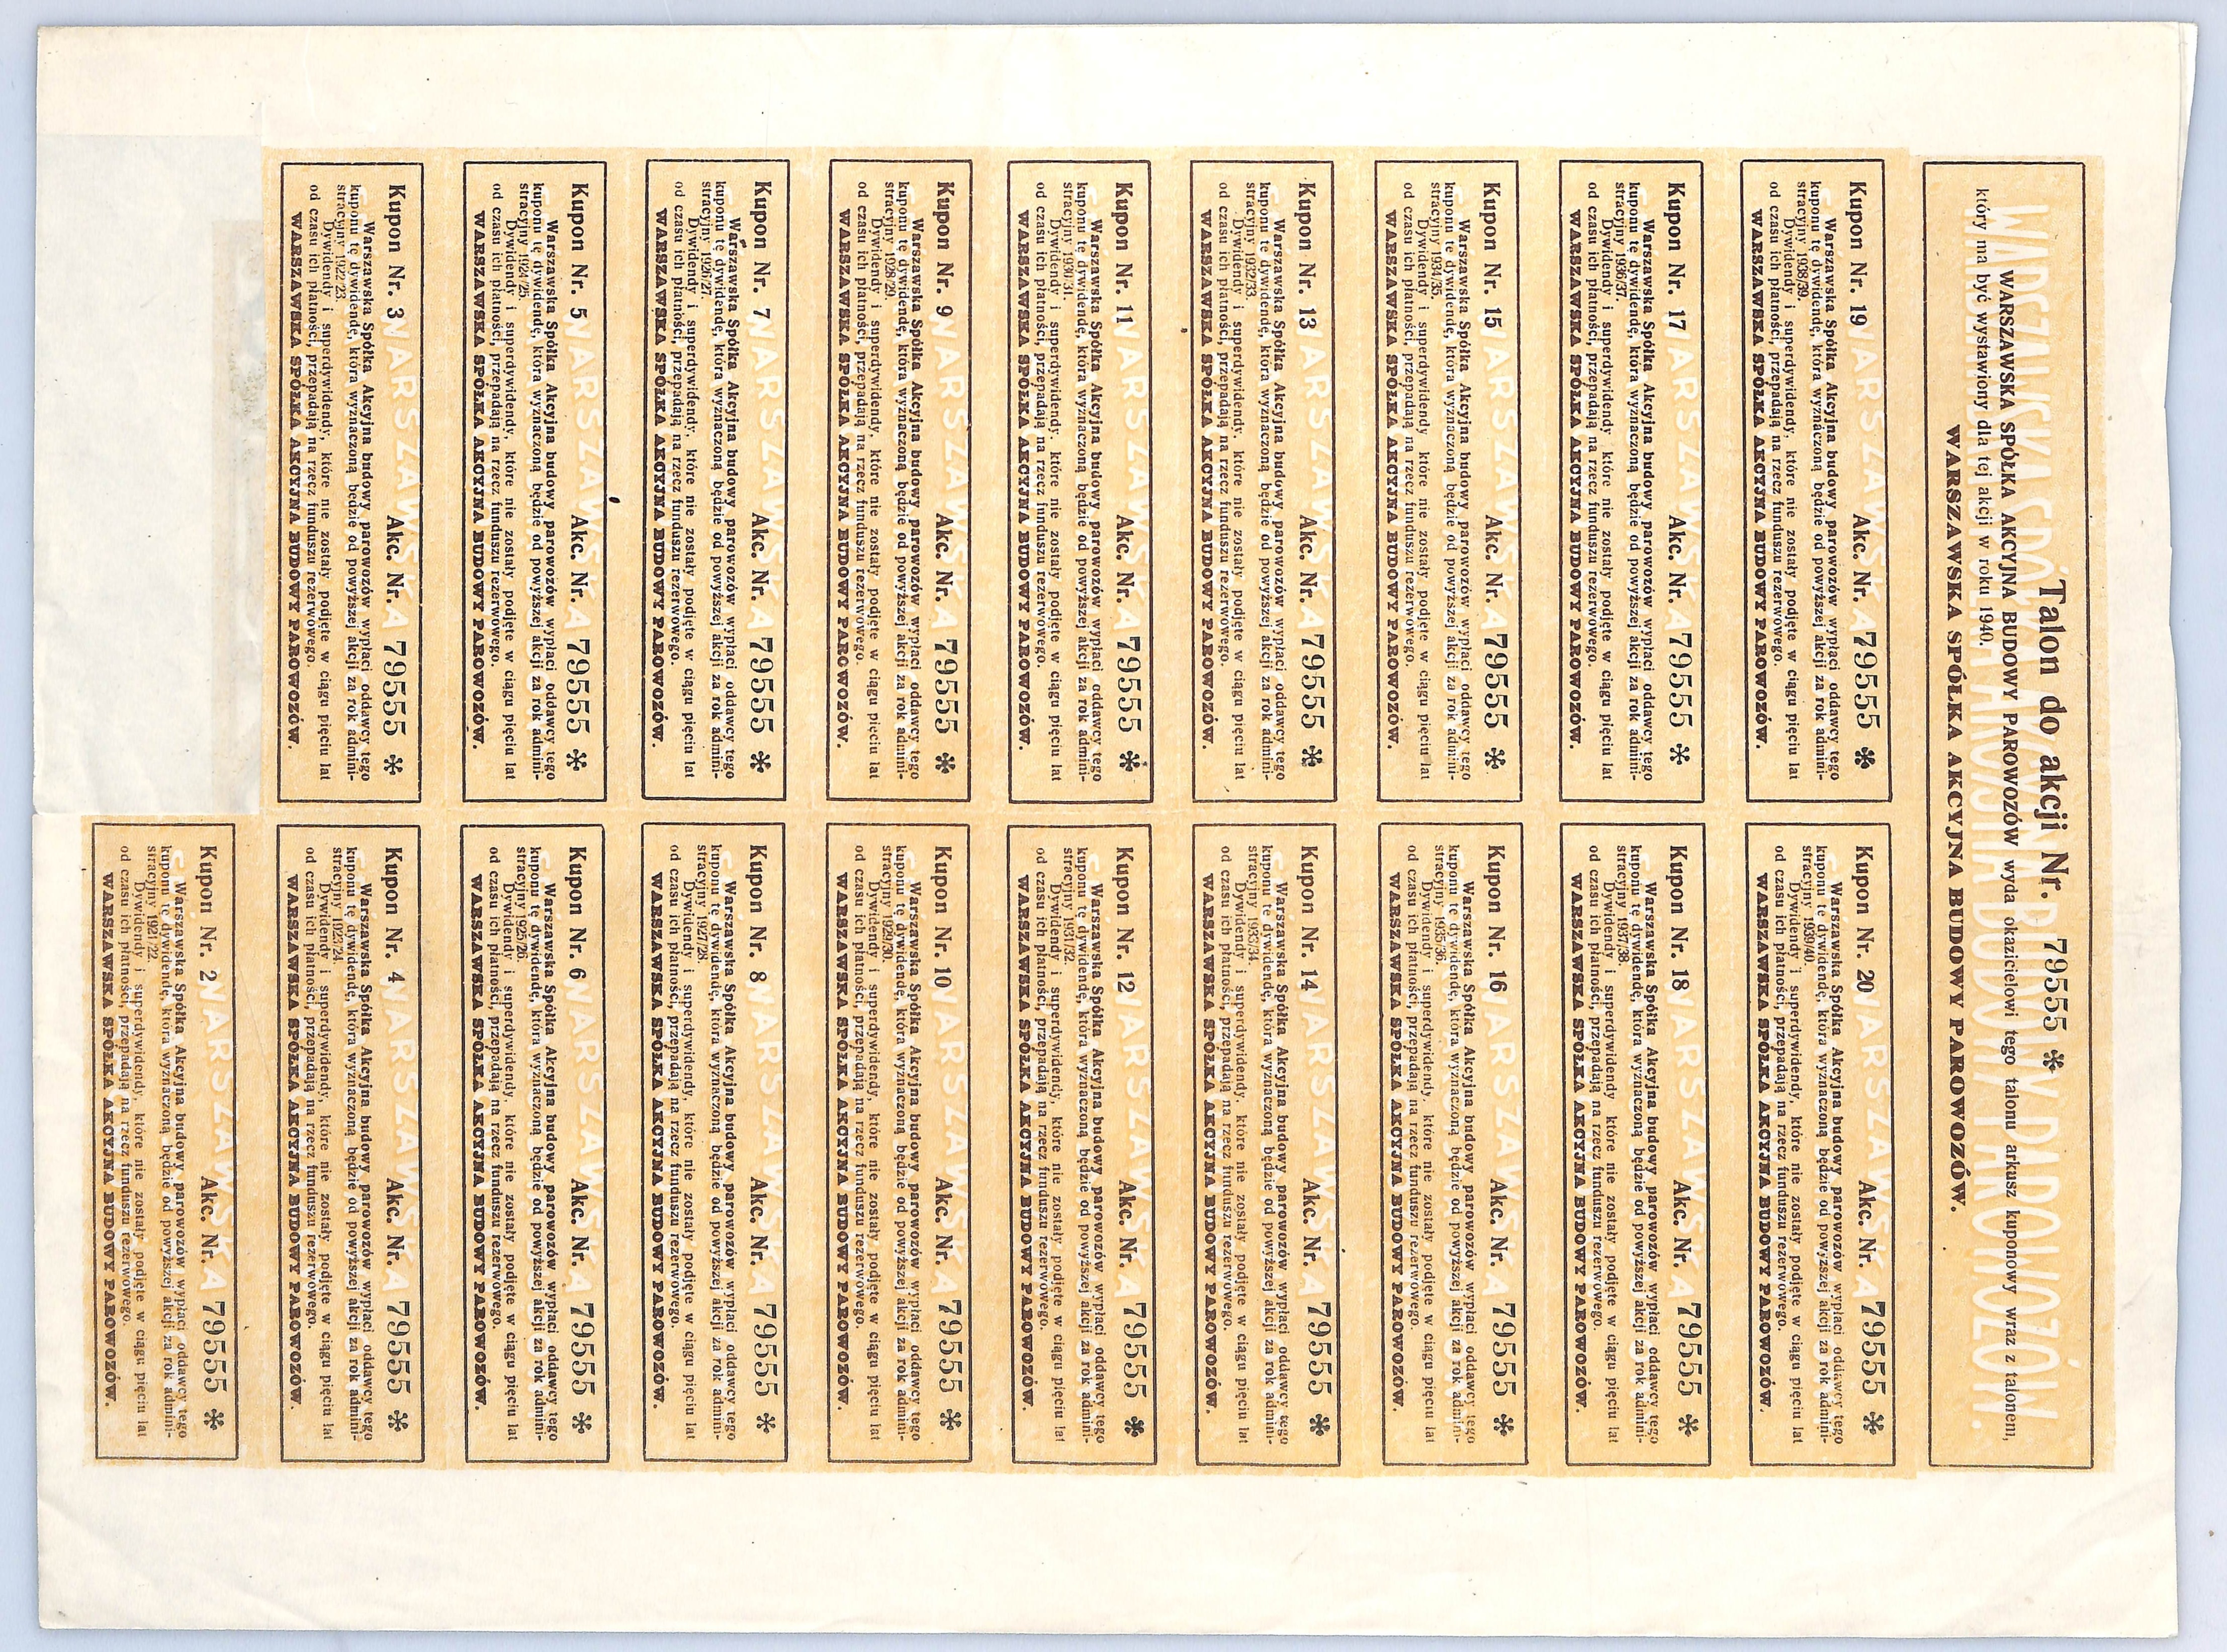 Talon do akcji Nr. 79555 ✻
WARSZAWSKA SPÓŁKA AKCYJNA BUDOWY PAROWOZÓW wyda okazicielowi tego talonu arkusz kuponowy wraz z talonem,
który ma być wystawiony dla tej akcji w roku 1940.
WARSZAWSKA SPÓŁKA AKCYJNA BUDOWY PAROWOZÓW.
Kupon Nr. 19 Akc. Nr. 79555 ✻
Warszawska Spółka Akcyjna budowy parowozów wypłaci oddawcy tego
kuponu tę dywidendę, która wyznaczoną będzie od powyższej akcji za rok admini-
stracyjny 1938/39.
Dywidendy i superdywidendy, które nie zostały podjęte w ciągu pięciu lat
od czasu ich płatności, przepadają na rzecz funduszu rezerwowego.
WARSZAWSKA SPÓŁKA AKCYJNA BUDOWY PAROWOZÓW.
Kupon Nr. 20 Akc. Nr. 79555 ✻
Warszawska Spółka Akcyjna budowy parowozów wypłaci oddawcy tego
kuponu tę dywidendę, która wyznaczoną będzie od powyższej akcji za rok admini-
stracyjny 1939/40.
Dywidendy i superdywidendy, które nie zostały podjęte w ciągu pięciu lat
od czasu ich płatności, przepadają na rzecz funduszu rezerwowego.
WARSZAWSKA SPÓŁKA AKCYJNA BUDOWY PAROWOZÓW.
Kupon Nr. 17 Akc. Nr. 79555 ✻
Warszawska Spółka Akcyjna budowy parowozów wypłaci oddawcy tego
kuponu tę dywidendę, która wyznaczoną będzie od powyższej akcji za rok admini-
stracyjny 1936/37.
Dywidendy i superdywidendy, które nie zostały podjęte w ciągu pięciu lat
od czasu ich płatności, przepadają na rzecz funduszu rezerwowego.
WARSZAWSKA SPÓŁKA AKCYJNA BUDOWY PAROWOZÓW.
Kupon Nr. 18 Akc. Nr. 79555 ✻
Warszawska Spółka Akcyjna budowy parowozów wypłaci oddawcy tego
kuponu tę dywidendę, która wyznaczoną będzie od powyższej akcji za rok admini-
stracyjny 1937/38.
Dywidendy i superdywidendy, które nie zostały podjęte w ciągu pięciu lat
od czasu ich płatności, przepadają na rzecz funduszu rezerwowego.
WARSZAWSKA SPÓŁKA AKCYJNA BUDOWY PAROWOZÓW.
Kupon Nr. 15 Akc. Nr. 79555 ✻
Warszawska Spółka Akcyjna budowy parowozów wypłaci oddawcy tego
kuponu tę dywidendę, która wyznaczoną będzie od powyższej akcji za rok admini-
stracyjny 1934/35.
Dywidendy i superdywidendy które nie zostały podjęte w ciągu pięciu lat
od czasu ich płatności, przepadają na rzecz funduszu rezerwowego.
WARSZAWSKA SPÓŁKA AKCYJNA BUDOWY PAROWOZÓW.
Kupon Nr. 16 Akc. Nr. 79555 ✻
Warszawska Spółka Akcyjna budowy parowozów wypłaci oddawcy tego
kuponu tę dywidendę, która wyznaczoną będzie od powyższej akcji za rok admini-
stracyjny 1935/36.
Dywidendy i superdywidendy, które nie zostały podjęte w ciągu pięciu lat
od czasu ich płatności, przepadają na rzecz funduszu rezerwowego.
WARSZAWSKA SPÓŁKA AKCYJNA BUDOWY PAROWOZÓW.
Kupon Nr. 13 Akc. Nr. 79555 ✻
Warszawska Spółka Akcyjna budowy parowozów wypłaci oddawcy tego
kuponu tę dywidendę, która wyznaczoną będzie od powyższej akcji za rok admini-
stracyjny 1932/33.
Dywidendy i superdywidendy, które nie zostały podjęte w ciągu pięciu lat
od czasu ich płatności, przepadają na rzecz funduszu rezerwowego.
WARSZAWSKA SPÓŁKA AKCYJNA BUDOWY PAROWOZÓW.
Kupon Nr. 14 Akc. Nr. 79555 ✻
Warszawska Spółka Akcyjna budowy parowozów wypłaci oddawcy tego
kuponu tę dywidendę, która wyznaczoną będzie od powyższej akcji za rok admini-
stracyjny 1933/34.
Dywidendy i superdywidendy, które nie zostały podjęte w ciągu pięciu lat
od czasu ich płatności, przepadają na rzecz funduszu rezerwowego.
WARSZAWSKA SPÓŁKA AKCYJNA BUDOWY PAROWOZÓW.
Kupon Nr. 11 Akc. Nr. 79555 ✻
Warszawska Spółka Akcyjna budowy parowozów wypłaci oddawcy tego
kuponu tę dywidendę, która wyznaczoną będzie od powyższej akcji za rok admini-
stracyjny 1930/31.
Dywidendy i superdywidendy, które nie zostały podjęte w ciągu pięciu lat
od czasu ich płatności, przepadają na rzecz funduszu rezerwowego.
WARSZAWSKA SPÓŁKA AKCYJNA BUDOWY PAROWOZÓW.
Kupon Nr. 12 Akc. Nr. 79555 ✻
Warszawska Spółka Akcyjna budowy parowozów wypłaci oddawcy tego
kuponu tę dywidendę, która wyznaczoną będzie od powyższej akcji za rok admini-
stracyjny 1931/32.
Dywidendy i superdywidendy, które nie zostały podjęte w ciągu pięciu lat
od czasu ich płatności, przepadają na rzecz funduszu rezerwowego.
WARSZAWSKA SPÓŁKA AKCYJNA BUDOWY PAROWOZÓW.
Kupon Nr. 9 Akc. Nr. 79555 ✻
Warszawska Spółka Akcyjna budowy parowozów wypłaci oddawcy tego
kuponu tę dywidendę, która wyznaczoną będzie od powyższej akcji za rok admini-
stracyjny 1928/29.
Dywidendy i superdywidendy, które nie zostały podjęte w ciągu pięciu lat
od czasu ich płatności, przepadają na rzecz funduszu rezerwowego.
WARSZAWSKA SPÓŁKA AKCYJNA BUDOWY PAROWOZÓW.
Kupon Nr. 10 Akc. Nr. 79555 ✻
Warszawska Spółka Akcyjna budowy parowozów wypłaci oddawcy tego
kuponu tę dywidendę, która wyznaczoną będzie od powyższej akcji za rok admini-
stracyjny 1929/30.
Dywidendy i superdywidendy, które nie zostały podjęte w ciągu pięciu lat
od czasu ich płatności, przepadają na rzecz funduszu rezerwowego.
WARSZAWSKA SPÓŁKA AKCYJNA BUDOWY PAROWOZÓW.
Kupon Nr. 7 Akc. Nr. 79555 ✻
Warszawska Spółka Akcyjna budowy parowozów wypłaci oddawcy tego
kuponu tę dywidendę, która wyznaczoną będzie od powyższej akcji za rok admini-
stracyjny 1926/27.
Dywidendy i superdywidendy, które nie zostały podjęte w ciągu pięciu lat
od czasu ich płatności, przepadają na rzecz funduszu rezerwowego.
WARSZAWSKA SPÓŁKA AKCYJNA BUDOWY PAROWOZÓW.
Kupon Nr. 8 Akc. Nr. 79555 ✻
Warszawska Spółka Akcyjna budowy parowozów wypłaci oddawcy tego
kuponu tę dywidendę, która wyznaczoną będzie od powyższej akcji za rok admini-
stracyjny 1927/28.
Dywidendy i superdywidendy, które nie zostały podjęte w ciągu pięciu lat
od czasu ich płatności, przepadają na rzecz funduszu rezerwowego.
WARSZAWSKA SPÓŁKA AKCYJNA BUDOWY PAROWOZÓW.
Kupon Nr. 5 Akc. Nr. 79555 ✻
Warszawska Spółka Akcyjna budowy parowozów wypłaci oddawcy tego
kuponu tę dywidendę, która wyznaczoną będzie od powyższej akcji za rok admini-
stracyjny 1924/25.
Dywidendy i superdywidendy, które nie zostały podjęte w ciągu pięciu lat
od czasu ich płatności, przepadają na rzecz funduszu rezerwowego.
WARSZAWSKA SPÓŁKA AKCYJNA BUDOWY PAROWOZÓW.
Kupon Nr. 6 Akc. Nr. 79555 ✻
Warszawska Spółka Akcyjna budowy parowozów wypłaci oddawcy tego
kuponu tę dywidendę, która wyznaczoną będzie od powyższej akcji za rok admini-
stracyjny 1925/26.
Dywidendy i superdywidendy, które nie zostały podjęte w ciągu pięciu lat
od czasu ich płatności, przepadają na rzecz funduszu rezerwowego.
WARSZAWSKA SPÓŁKA AKCYJNA BUDOWY PAROWOZÓW.
Kupon Nr. 3 Akc. Nr. 79555 ✻
Warszawska Spółka Akcyjna budowy parowozów wypłaci oddawcy tego
kuponu tę dywidendę, która wyznaczoną będzie od powyższej akcji za rok admini-
stracyjny 1922/23.
Dywidendy i superdywidendy, które nie zostały podjęte w ciągu pięciu lat
od czasu ich płatności, przepadają na rzecz funduszu rezerwowego.
WARSZAWSKA SPÓŁKA AKCYJNA BUDOWY PAROWOZÓW.
Kupon Nr. 4 Akc. Nr. 79555 ✻
Warszawska Spółka Akcyjna budowy parowozów wypłaci oddawcy tego
kuponu tę dywidendę, która wyznaczoną będzie od powyższej akcji za rok admini-
stracyjny 1923/24.
Dywidendy i superdywidendy, które nie zostały podjęte w ciągu pięciu lat
od czasu ich płatności, przepadają na rzecz funduszu rezerwowego.
WARSZAWSKA SPÓŁKA AKCYJNA BUDOWY PAROWOZÓW.
Kupon Nr. 2 Akc. Nr. 79555 ✻
Warszawska Spółka Akcyjna budowy parowozów wypłaci oddawcy tego
kuponu tę dywidendę, która wyznaczoną będzie od powyższej akcji za rok admini-
stracyjny 1921/22.
Dywidendy i superdywidendy, które nie zostały podjęte w ciągu pięciu lat
od czasu ich płatności, przepadają na rzecz funduszu rezerwowego.
WARSZAWSKA SPÓŁKA AKCYJNA BUDOWY PAROWOZÓW.